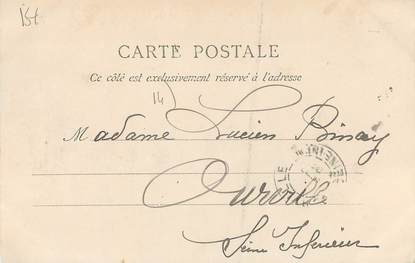 CARTE POSTALE
Ce côté est exclusivement réservé à l'adresse
14
Madame Lucien Binay
Ourville
Seine Inférieure